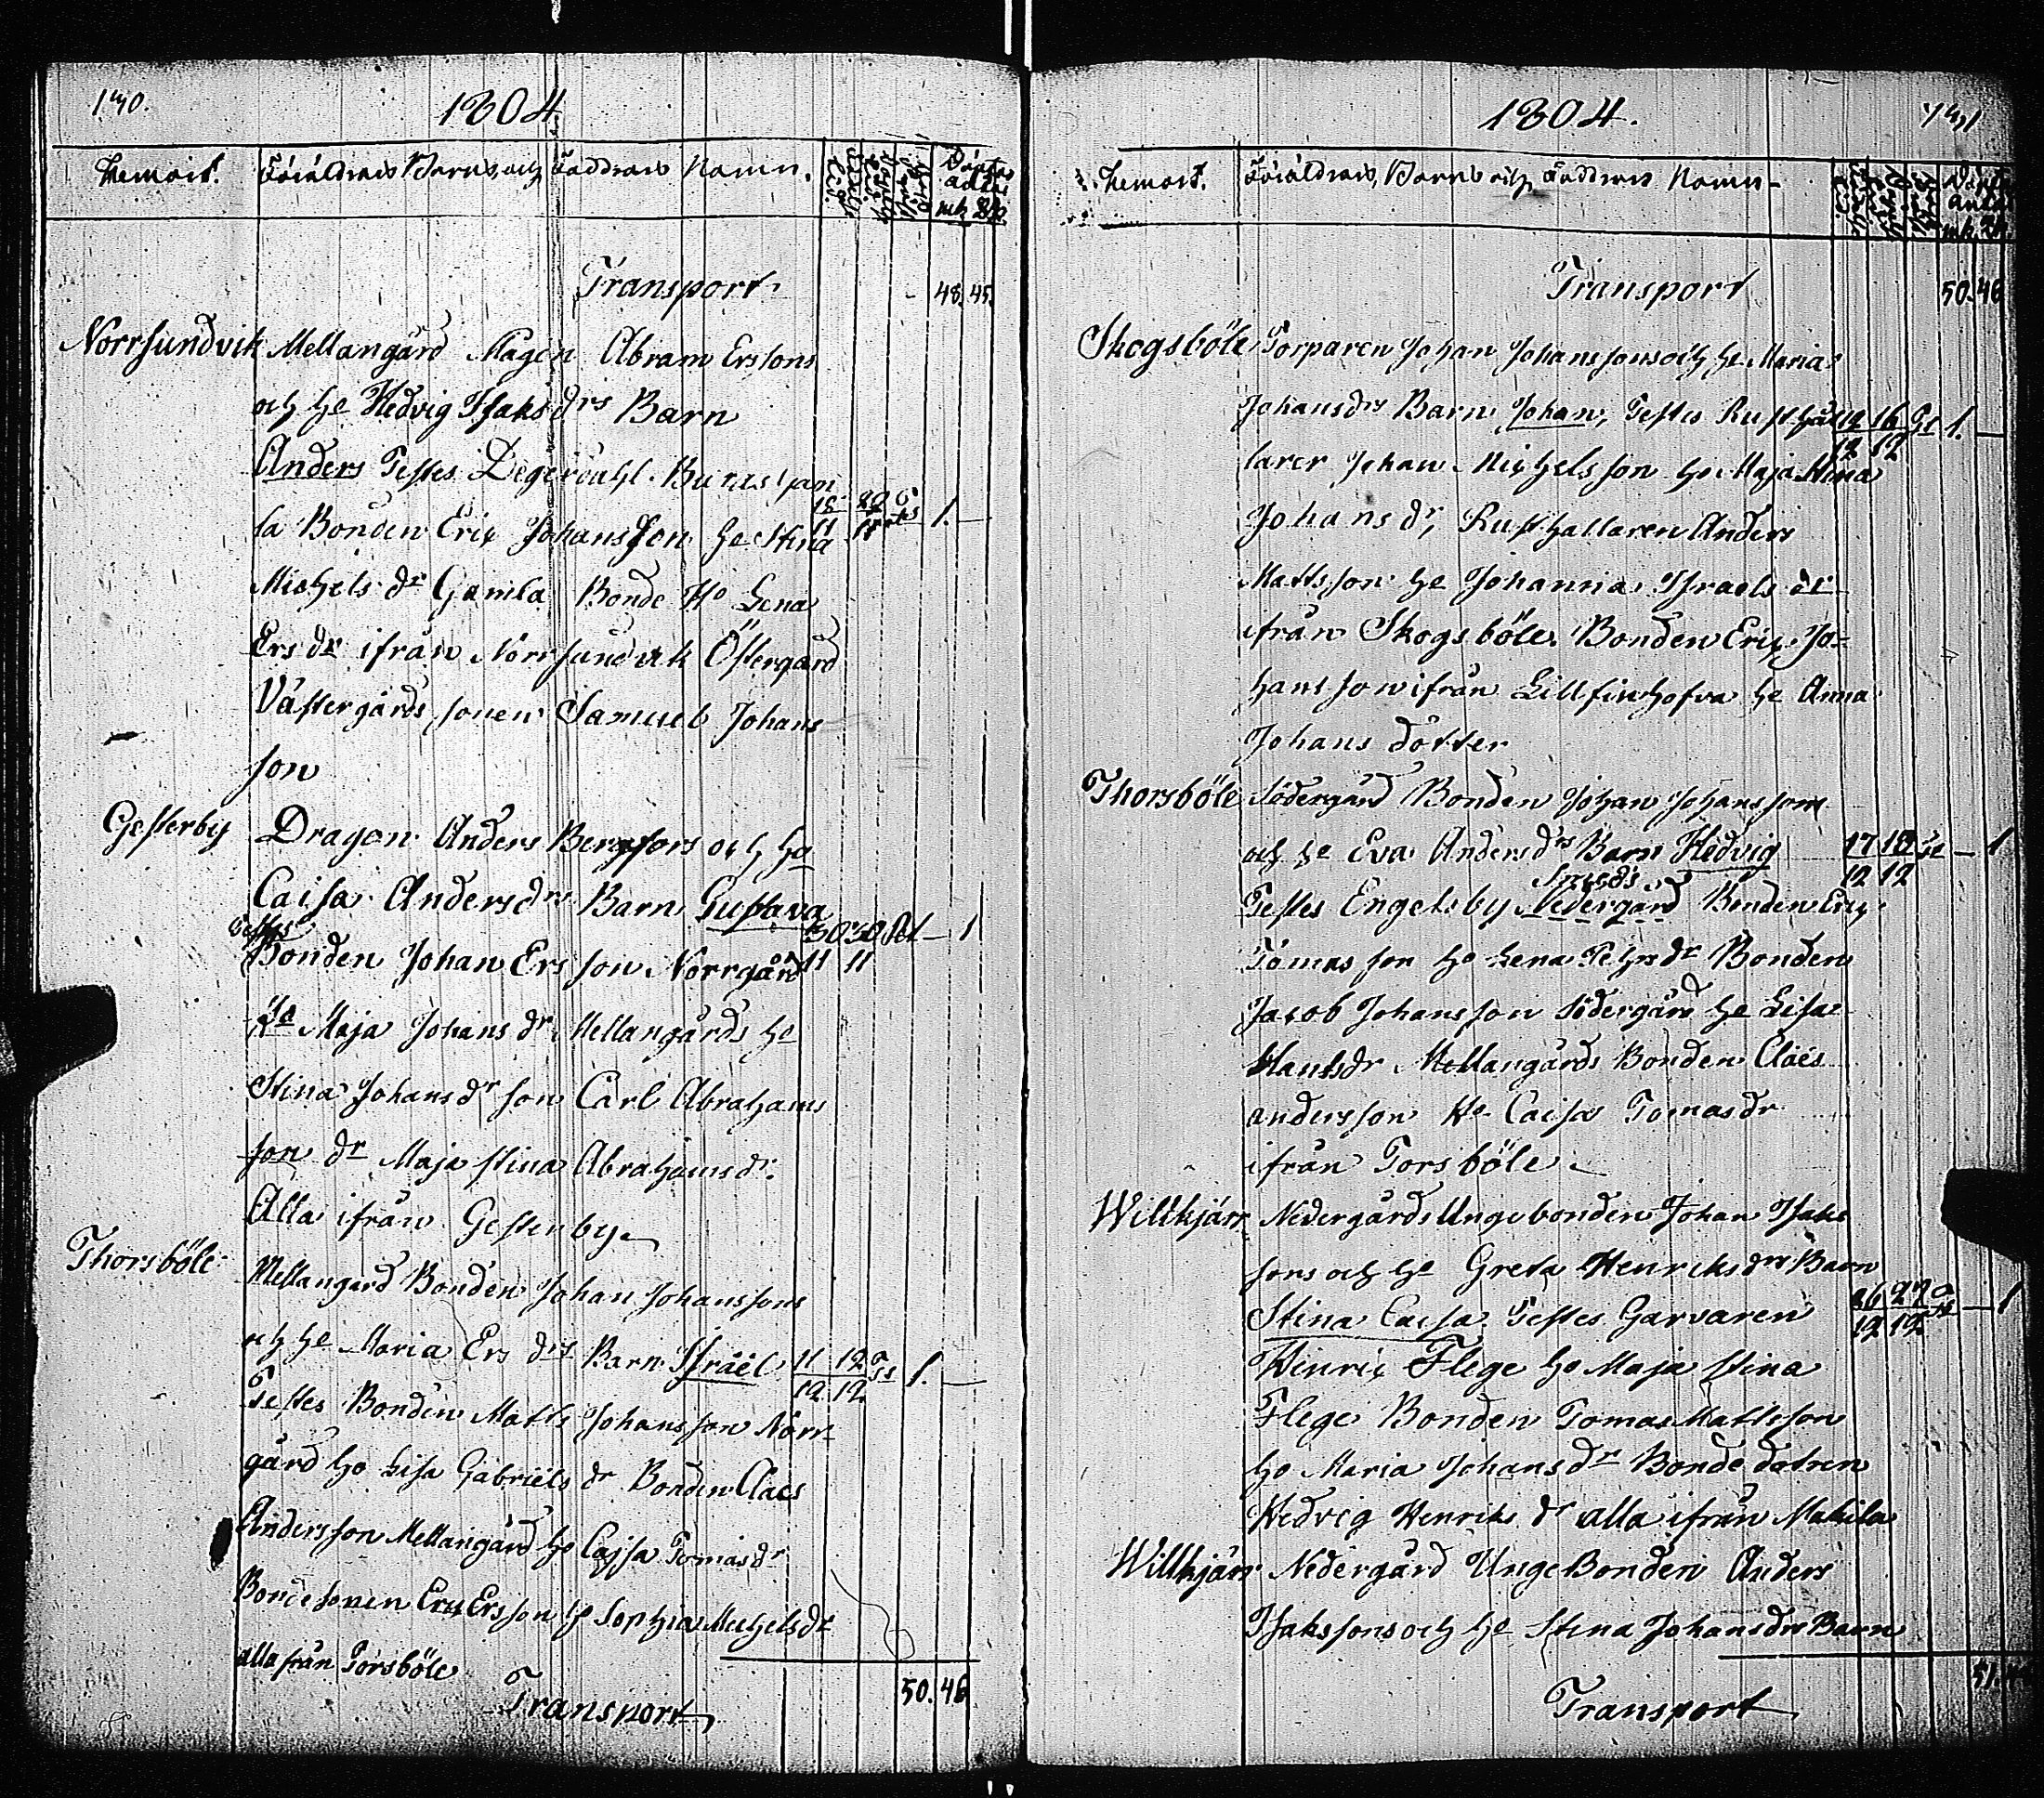 140.
1804
Hemvist. Föräldrars Barns, och Faddrars Namn.
mk
Transport. 48. 45.
Norrsundvik Mellangård Mågen Abram Erssons
och he Hedvig Isaksdrs Barn
Anders Testes Degerdahl
la Bonden Erix Johansson he Stina 1. —
Michels dr Gamla Bonde Ho Lena
Ers dr ifrån Norrsundvik Östergård
Västergårds sonen Samuel Johans
son
Gesterby Dragon Anders Bergfors och ho
Caisa Andersdrs Barn Gustava
Testes 30 30 — 1
Bonden Johan Ersson Norrgård 11 11
He Maja Johans dr Mellangårds he
Stina Johans dr son Carl Abrahams
son dr Maja Stina Abrahamsdr.
Alla ifrån Gesterby
Thorsböle Mellangård Bonden Johan Johanssons
och he Maria Ers drs Barn Israel 11 12 1. —
12 12
Testes Bonden Matts Johansson Norr
gård ho Lisa Gabriels dr Bonden Claes
Andersson Mellangård ho Cajsa Tomasdr
Bondesonen Erix Ersson he Sophia Michelsdr
alla från Torsböle
Transport 50. 46
1804.
141
Hemvist. Föräldrars, Barns och Faddrars Namn
mk
Transport 50. 46
Skogsböle Torparen Johan Johanssons och he Maria
Johansdrs Barn Johan, Testes Rusthål 12 16 1. —
12 12
larer Johan Michelsson ho Maja Stina
Johansdr, Rusthållaren Anders
Mattsson he Johanna Israels dr
ifrån Skogsböle. Bonden Erix Jo-
hansson ifrån Lillfinhofva he Anna
Johans dotter
Thorsböle Södergård Bonden Johan Johanssons
och he Eva Andersdrs Barn Hedvig 17 18 — 1
12 12
Testes Engelsby Nedergård Bonden Erix
Tomasson ho Lena Pehrsdr Bonden
Jacob Johansson Södergård he Lisa
Hansdr Mellangårds Bonden Claës
andersson Ho Caisa Tomasdr
ifrån Torsböle
Willkjärr Nedergårds Unge bonden Johan Isaks
sons och he Greta Henriksdrs Barn
Stina Caisa Testes Garvaren 26 27 — 1
12 12
Hinrix Flege ho Maja Stina
Flege Bonden Tomas Mattsson
ho Maria Johansdr Bonde dotren
Hedvig Henriks dr alla ifrån Malula
Willkjärr Nedergård Unge Bonden Anders
Isakssons och he Stina Johansdrs Barn
Transport 51.